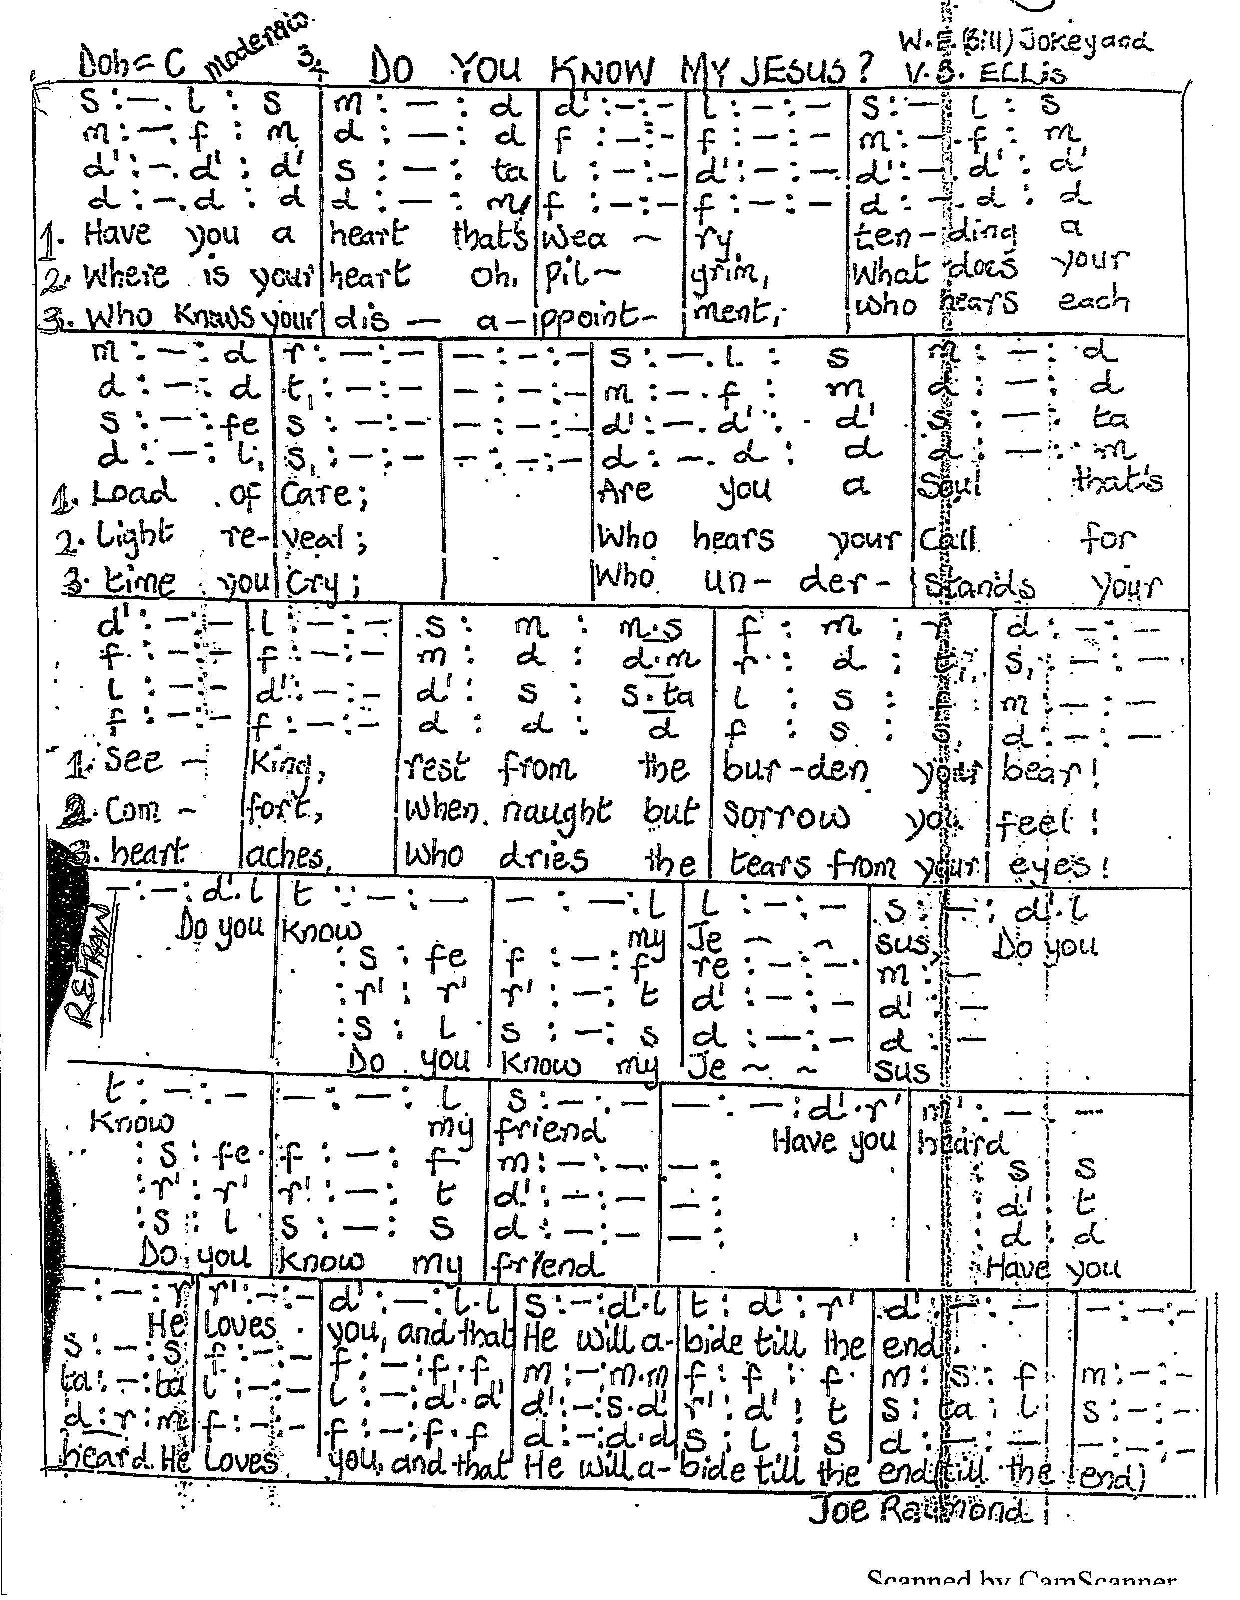 Doh = C Moderato. 3/4 DO YOU KNOW MY JESUS? W.F. (Bill) Jokeyand
V.B. ELLIS
s :—. l : s | m : — : d | d' : — : — | l : — : — | s : —. l : s
m : —. f : m | d : — : d | f : — : — | f : — : — | m : —. f : m
d' : —. d' : d' | s : — : ta | l : — : — | d' : — : — | d' : —. d' : d'
d : —. d : d | d : — : m | f : — : — | f : — : — | d : —. d : d
1. Have you a | heart that's | wea ~ | ry | ten-ding a
2. Where is your | heart oh, | pil ~ | grim, | What does your
3. Who Knows your | dis — a- | ppoint- | ment, | who hears each
m : — : d | r : — : — | — : — : — | s : —. l : s | m : — : d
d : — : d | t, : — : — | — : — : — | m : —. f : m | d : — : d
s : — : fe | s : — : — | — : — : — | d' : —. d' : d' | s : — : ta
d : — : l, | s, : — : — | — : — : — | d : —. d : d | d : — : m
1. Load of | Care; | | Are you a | Soul that's
2. Light re- | veal; | | Who hears your | Call for
3. time you | Cry; | | Who un- der- | stands your
d' : — : — | l : — : — | s : m : m.s | f : m : r | d : — : —
f : — : — | f : — : — | m : d : d.m | r : d : t, | s, : — : —
l : — : — | d' : — : — | d' : s : s.ta | l : s : f | m : — : —
f : — : — | f : — : — | d : d : d | f : s : s, | d : — : —
1. See ~ | king, | rest from the | bur-den your | bear!
2. Com ~ | fort, | When naught but | sorrow you | feel!
3. heart | aches, | Who dries the | tears from your | eyes!
REFRAIN
— : — : d'.l | t : — : — | — : — : l | l : — : — | s : — : d'.l
Do you | Know | my | Je ~ ~ | sus, Do you
: s : fe | f : — : f | re : — : — | m : —
: r' : r' | r' : — : t | d' : — : — | d' : —
: s : l | s : — : s | d : — : — | d : —
Do you | Know my | Je ~ ~ | sus
t : — : — | — : — : l | s : — : — | — : — : d'.r' | m' : — : —
Know | my | friend | Have you | heard
: s : fe | f : — : f | m : — : — | — : | : s : s
: r' : r' | r' : — : t | d' : — : — | — : | : d' : t
: s : l | s : — : s | d : — : — | — : | : d : d
Do you | Know my | friend | | Have you
— : — : r' | r' : — : — | d' : — : l.l | s : — : d'.l | t : d' : r' | d' : — : — | — : — : —
He | loves | you, and that | He will a- | bide till the | end.
s : — : s | f : — : — | f : — : f.f | m : — : m.m | f : f : f | m : s : f | m : — : —
ta : — : ta | l : — : — | l : — : d'.d' | d' : — : s.d' | r' : d' : t | s : ta : l | s : — : —
d : r : m | f : — : — | f : — : f.f | d : — : d.d | s : l : s | d : — : — | — : — : —
heard He | Loves | you, and that | He will a- | bide till the | end (till the | end)
Joe Raymond
Scanned by CamScanner